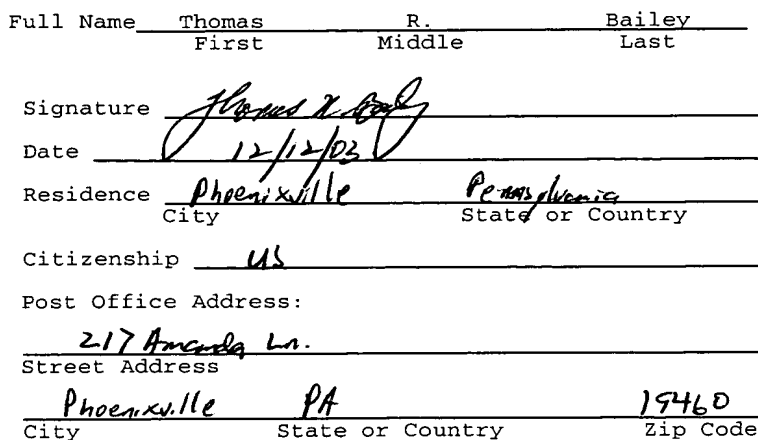 Full Name Thomas R. Bailey
First Middle Last
Signature Thomas R Baily
Date 12/12/03
Residence Phoenixville Pennsylvania
City State or Country
Citizenship US
Post Office Address:
217 Amanda Ln.
Street Address
Phoenixville PA 19460
City State or Country Zip Code